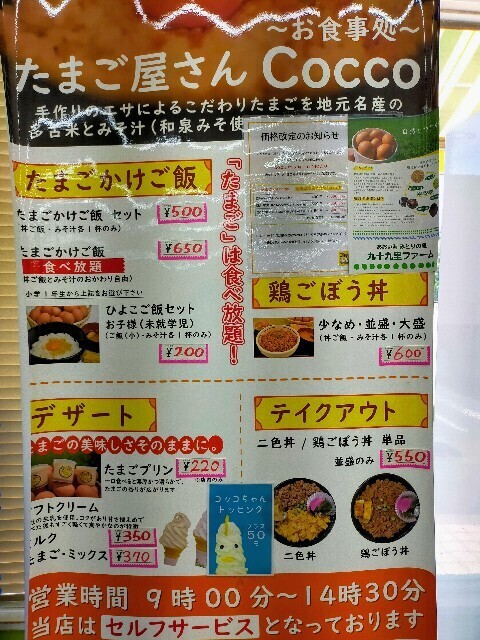 〜お食事処〜
たまご屋さん Cocco
手作りのエサによるこだわりたまごを地元名産の
多古米とみそ汁(和泉みそ使
価格改定のお知らせ
たまごかけご飯
「たまご」は食べ放題！
たまごかけご飯 セット
¥500
丼ご飯・みそ汁各1杯のみ)
たまごかけご飯
¥650
食べ放題
丼ご飯とみそ汁のおかわり自由)
小学1年生から上記をお選び下さい
ひよこご飯セット
お子様(未就学児)
(ご飯(小)・みそ汁各1杯のみ)
¥200
九十九里ファーム
鶏ごぼう丼
少なめ・並盛・大盛
(丼ご飯・みそ汁各1杯のみ)
¥600
デザート
たまごの美味しさそのままに。
たまごプリン
¥220
ソフトクリーム
ミルク
¥350
たまご・ミックス
¥370
コッコちゃん
トッピング
プラス
50円
テイクアウト
二色丼 / 鶏ごぼう丼 単品
並盛のみ
¥550
二色丼
鶏ごぼう丼
営業時間 9時00分〜14時30分
当店は セルフサービス となっております